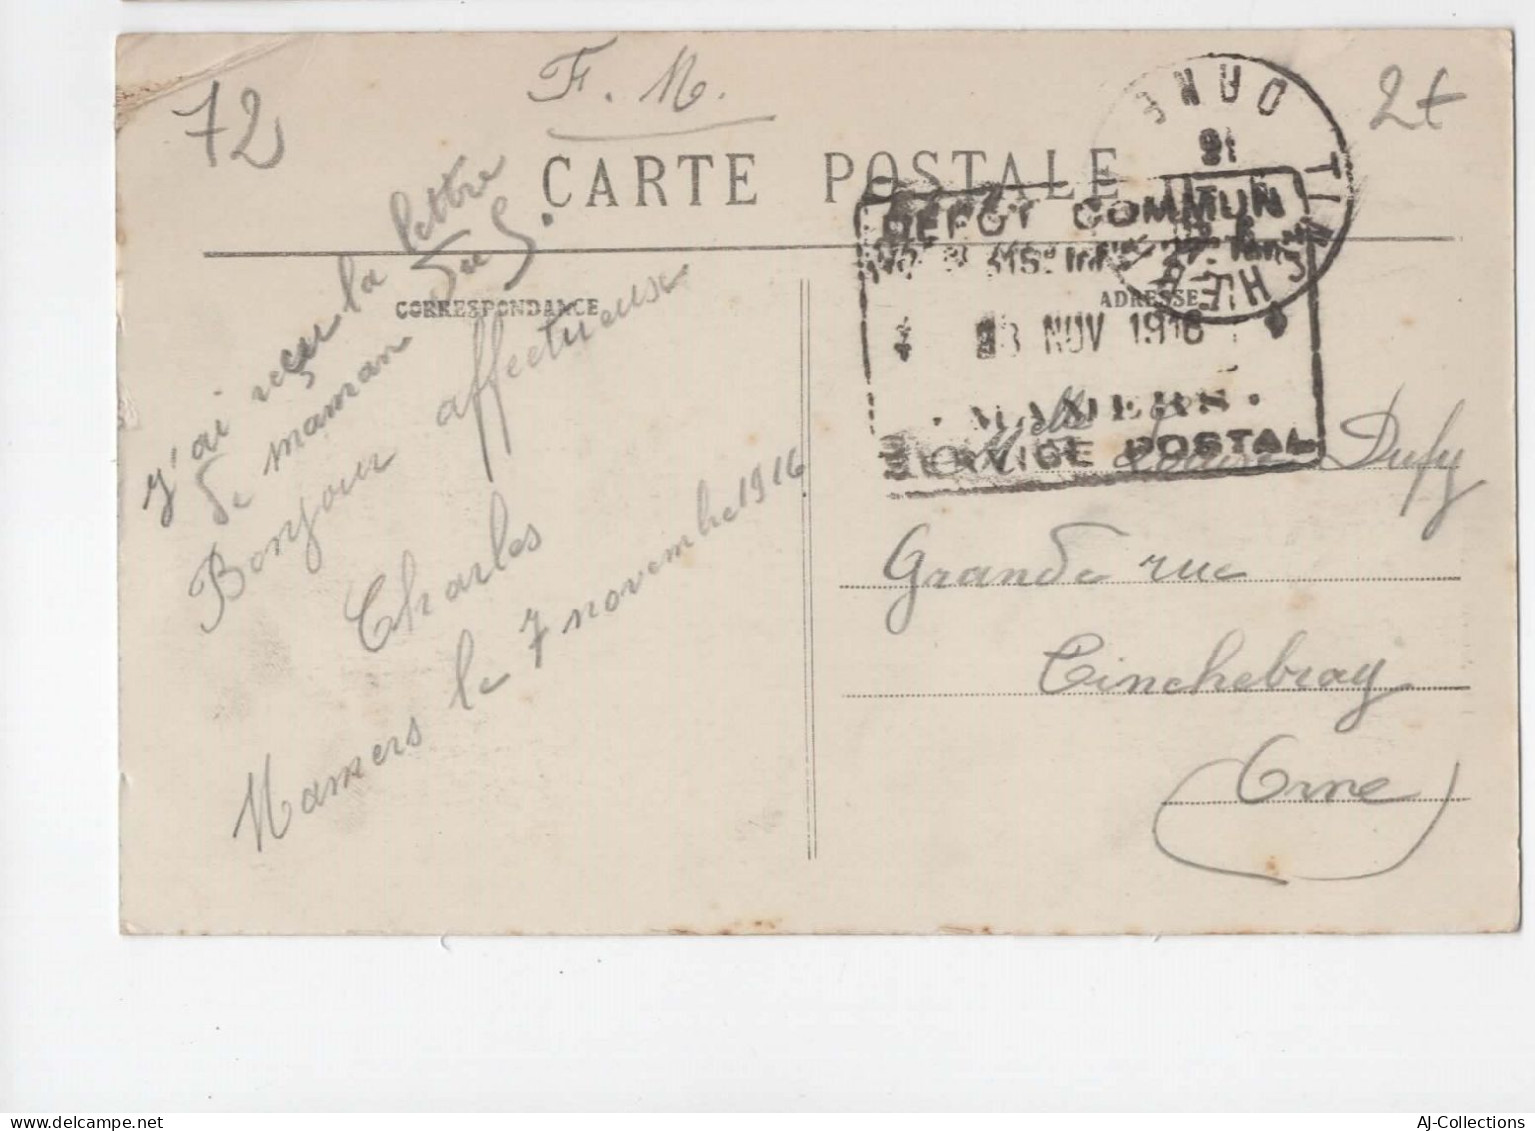 72
F. M.
2t
CARTE POSTALE
CORRESPONDANCE
ADRESSE
TINCHEBRAY
ORNE
16
DEPOT COMMUN
315e
8 NOV 1916
MAMERS
SERVICE POSTAL
j'ai reçu la lettre
de maman du 5.
Bonjour affectueux
Charles
Mamers le 7 novembre 1916
Melle Louise Dufy
Grande rue
Tinchebray
Orne
AJ-Collections